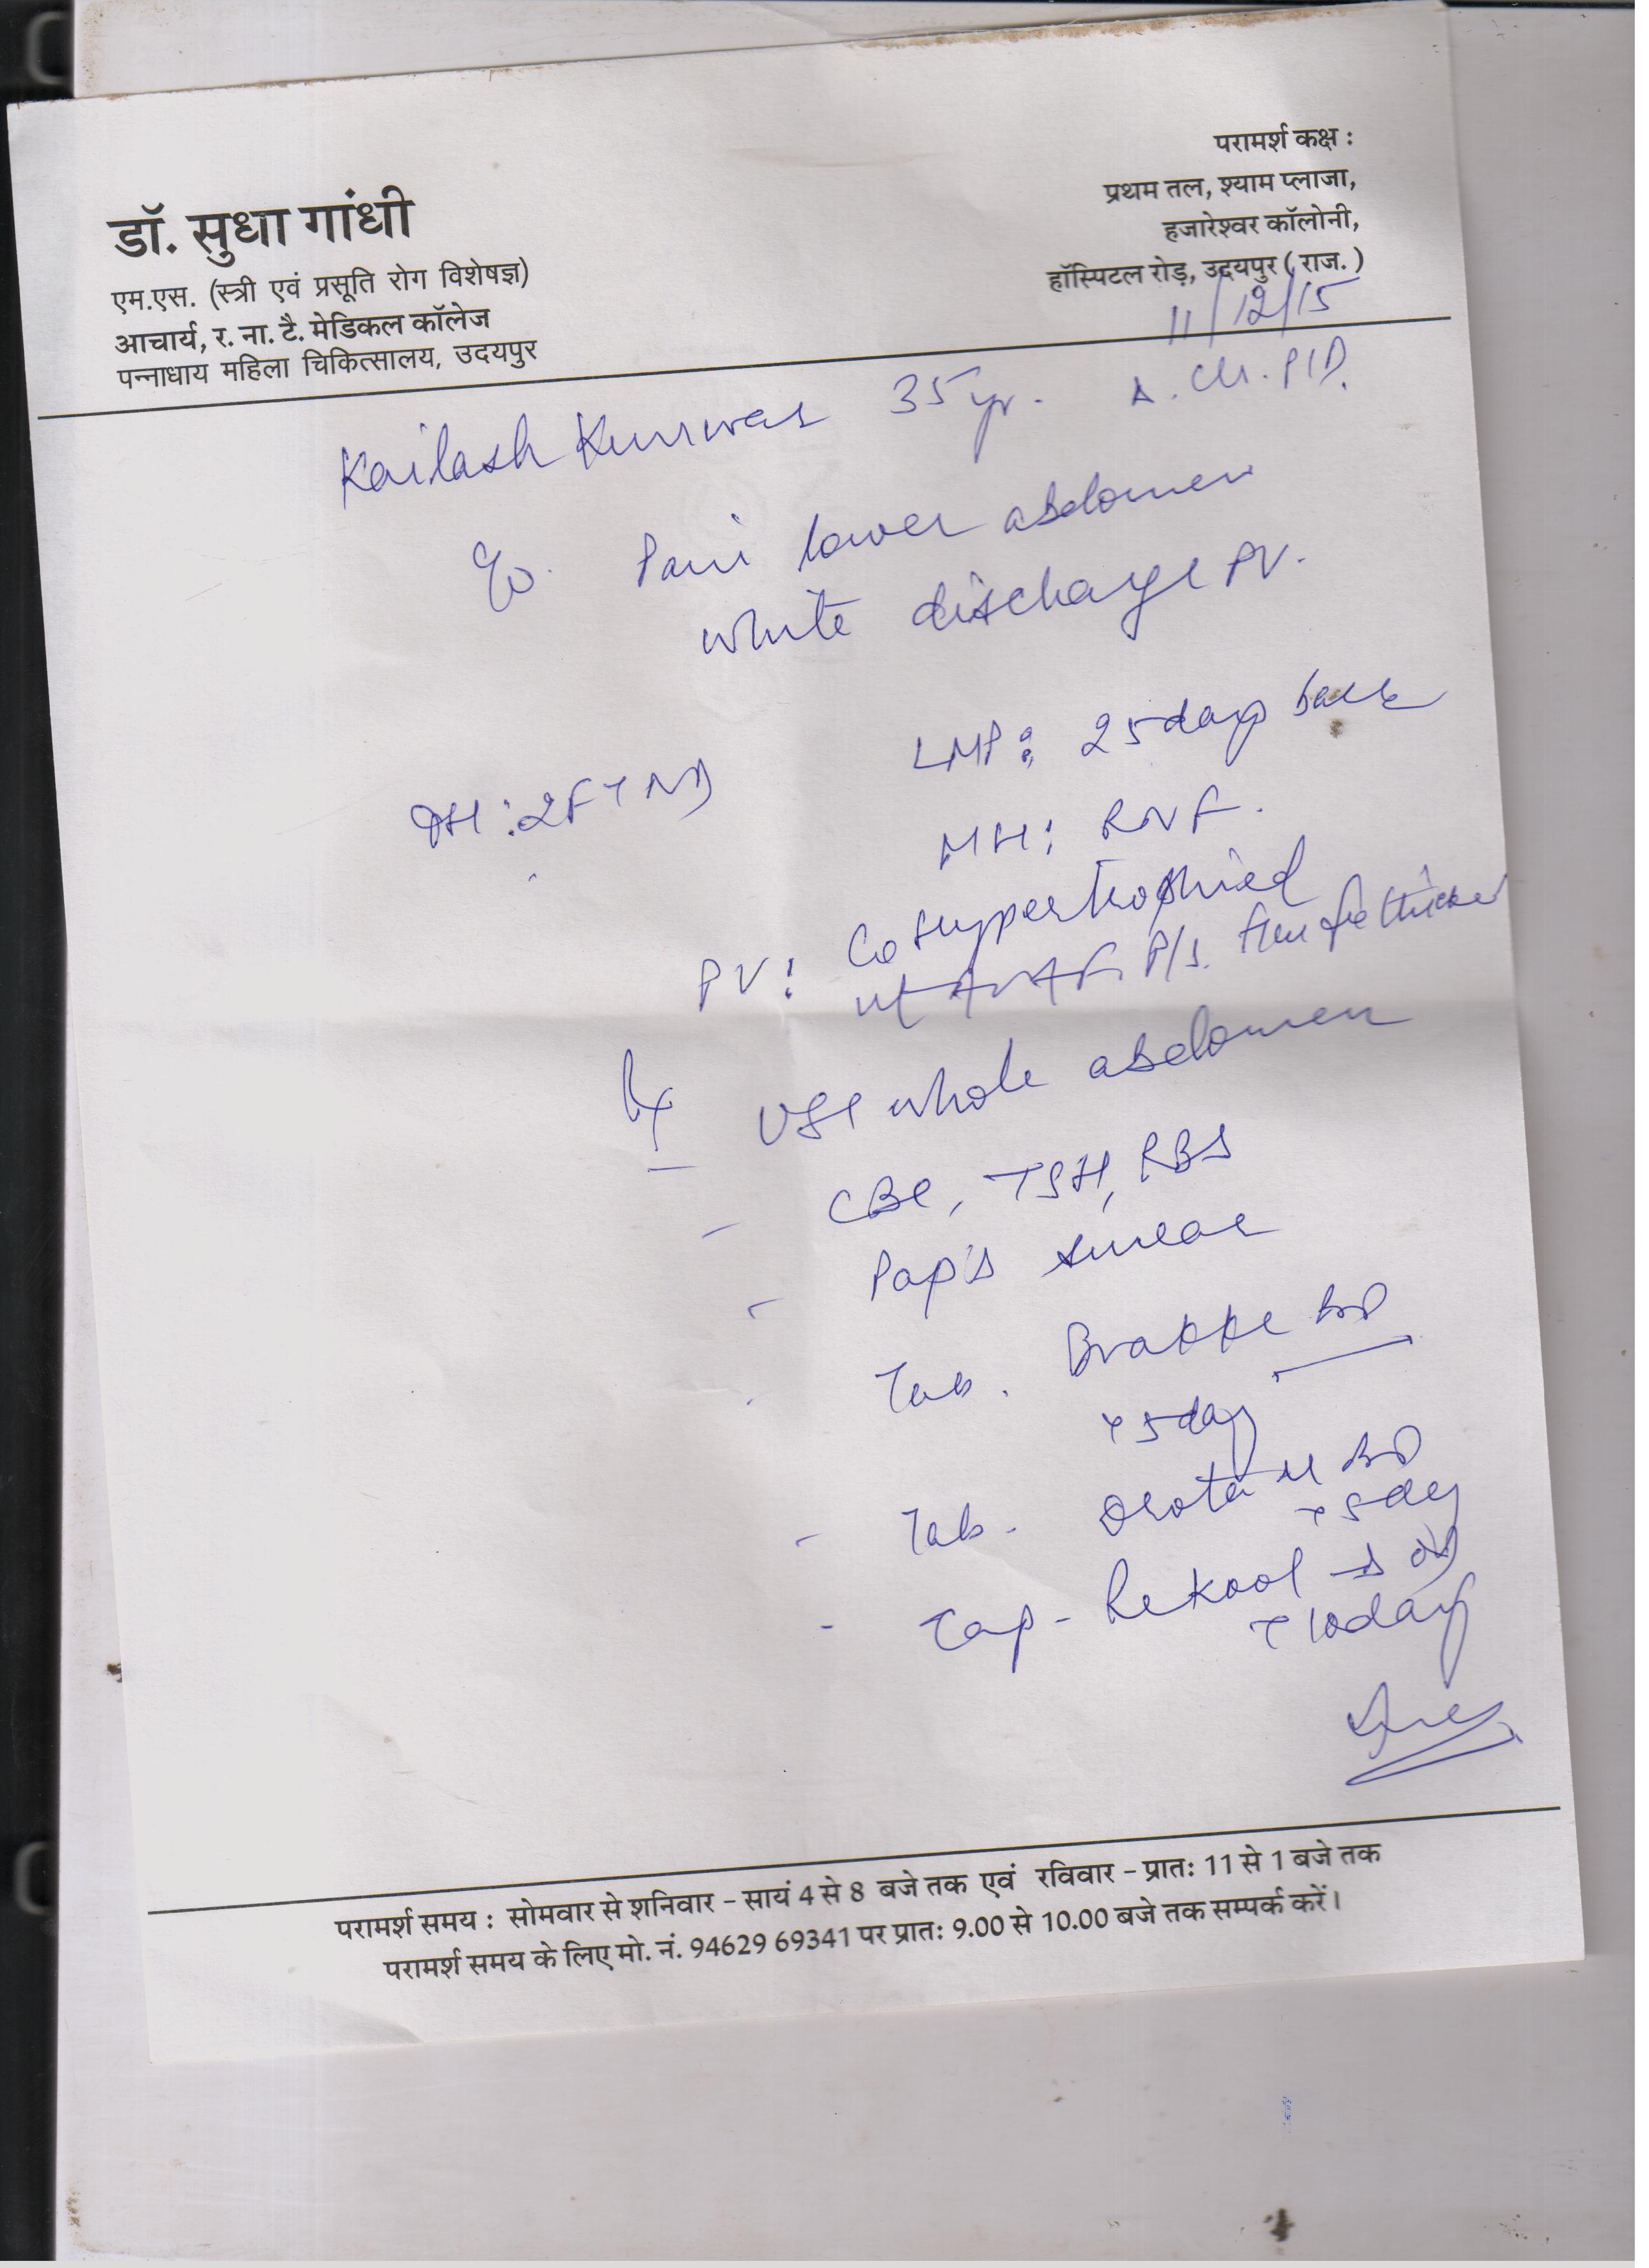 डॉ. सुधा गांधी
एम.एस. (स्त्री एवं प्रसूति रोग विशेषज्ञ)
आचार्य, र. ना. टै. मेडिकल कॉलेज
पन्नाधाय महिला चिकित्सालय, उदयपुर
परामर्श कक्ष :
प्रथम तल, श्याम प्लाजा,
हजारेश्वर कॉलोनी,
हॉस्पिटल रोड़, उदयपुर ( राज. )
11/12/15
Kailash Kunwar 35 yr. Ch. PID.
C/o. Pain lower abdomen
white discharge PV.
LMP: 25 days back
OH: 2FTND
MH: RNF.
PV: Cx Hypertrophied
ut AVAF. P/S.
USG whole abdomen
- CBC, TSH, RBS
- Pap's smear
Tab. BD
x 5 day
- Tab. Drota M BD
x 5 day
- Cap - Rekool - D OD
x 10 day
परामर्श समय : सोमवार से शनिवार - सायं 4 से 8 बजे तक एवं रविवार - प्रातः 11 से 1 बजे तक
परामर्श समय के लिए मो. नं. 94629 69341 पर प्रातः 9.00 से 10.00 बजे तक सम्पर्क करें।